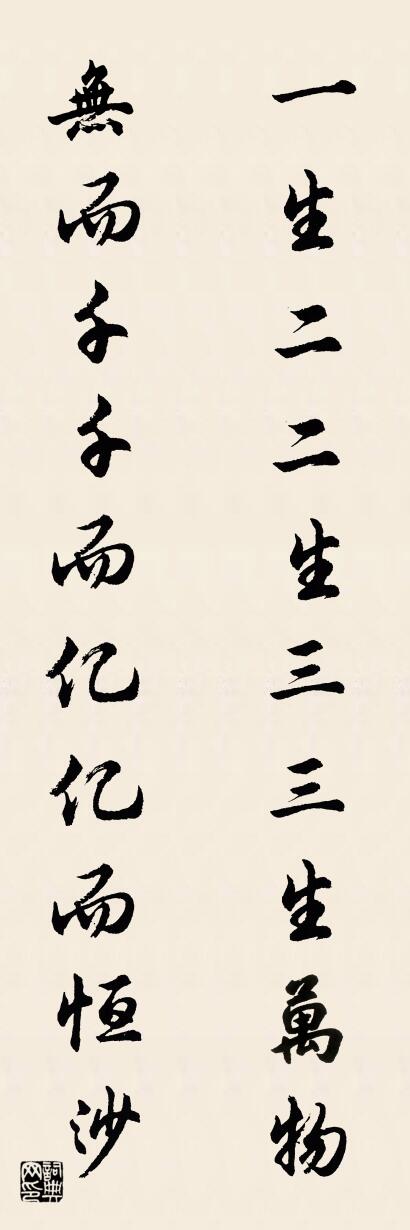 一生二二生三三生萬物
無而千千而亿亿而恒沙
詞典网印